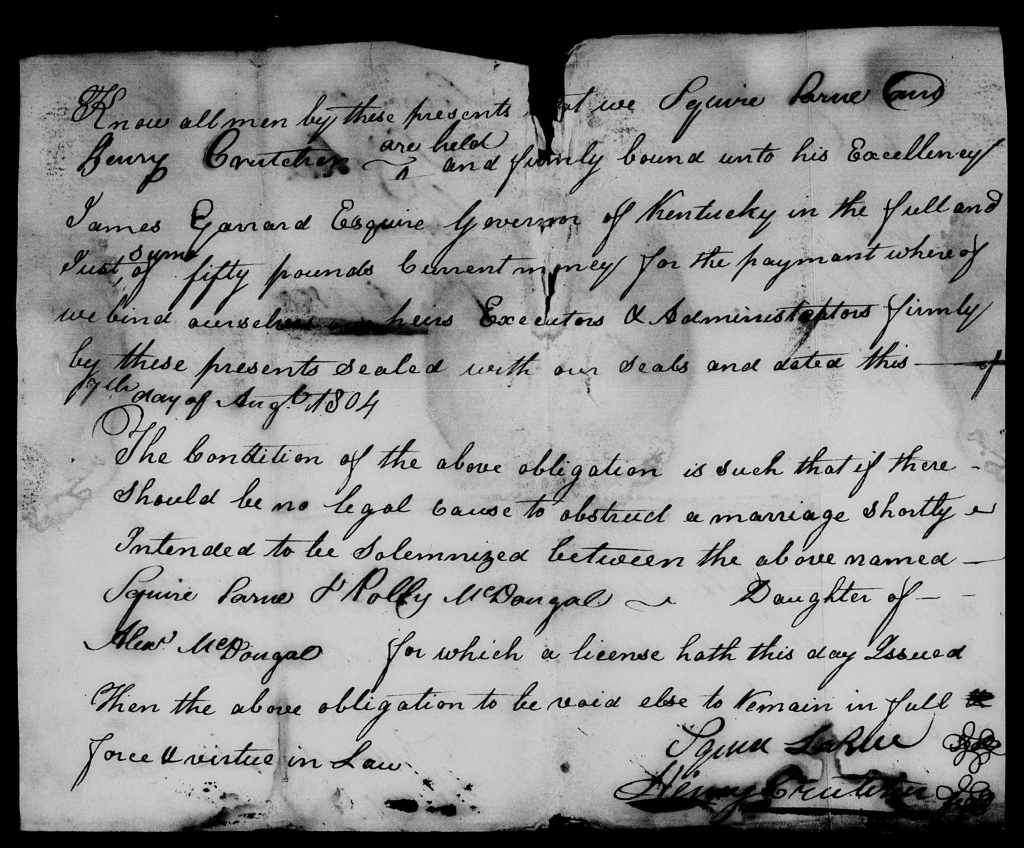 Know all men by these presents that we Squire Larue and
Henry Crutcher are held and firmly bound unto his Excellency
James Garrard Esquire Governor of Kentucky in the full and
Just sum of fifty pounds Current money for the paymant where of
we bind ourselves our heirs Executors & Administrators firmly
by these presents sealed with our seals and dated this of
17th day of Augt. 1804
The Condition of the above obligation is such that if there
should be no legal cause to obstruct a marriage shortly
Intended to be solemnized between the above named
Squire Larue & Polly McDougal Daughter of
Alexr. McDougal for which a license hath this day Issued
Then the above obligation to be void else to Remain in full
force & virtue in Law
Squire LaRue
Henry Crutcher